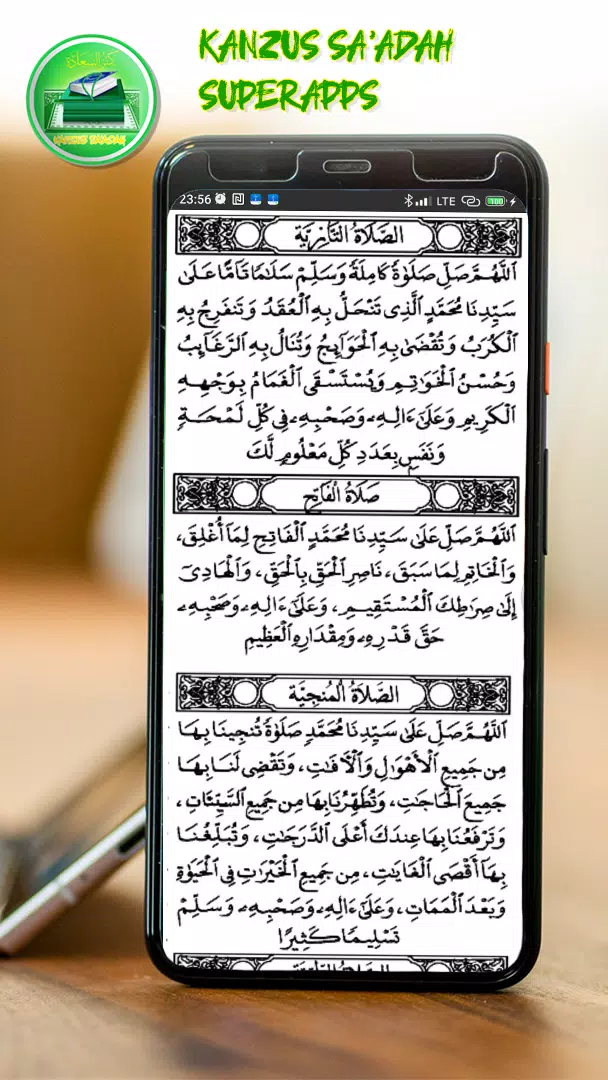 KANZUS SA'ADAH
SUPERAPPS
كنز السعادة
KANZUS SA'ADAH
23:56
LTE
100
الصَّلَاةُ التَّازِيَّة
اَللّٰهُمَّ صَلِّ صَلَوٰةً كَامِلَةً وَسَلِّمْ سَلَامًا تَآمًّا عَلَىٰ
سَيِّدِنَا مُحَمَّدٍ الَّذِى تَنْحَلُّ بِهِ الْعُقَدُ وَتَنْفَرِجُ بِهِ
الْكُرَبُ وَتُقْضَىٰ بِهِ الْحَوَآئِجُ وَتُنَالُ بِهِ الرَّغَآئِبُ
وَحُسْنُ الْخَوَاتِمِ وَيُسْتَسْقَى الْغَمَامُ بِوَجْهِهِ
الْكَرِيمِ وَعَلَىٰ ءَالِهِۦ وَصَحْبِهِۦ فِى كُلِّ لَمْحَةٍ
وَنَفَسٍ بِعَدَدِ كُلِّ مَعْلُومٍ لَّكَ
صَلَاةُ الْفَاتِحِ
اَللّٰهُمَّ صَلِّ عَلَىٰ سَيِّدِنَا مُحَمَّدٍ الْفَاتِحِ لِمَا أُغْلِقَ،
وَالْخَاتِمِ لِمَا سَبَقَ، نَاصِرِ الْحَقِّ بِالْحَقِّ، وَالْهَادِىٓ
إِلَىٰ صِرَاطِكَ الْمُسْتَقِيمِ، وَعَلَىٰٓ ءَالِهِۦ وَصَحْبِهِۦ
حَقَّ قَدْرِهِۦ وَمِقْدَارِهِ الْعَظِيمِ
الصَّلَاةُ الْمُنْجِيَّة
اَللّٰهُمَّ صَلِّ عَلَىٰ سَيِّدِنَا مُحَمَّدٍ صَلَوٰةً تُنْجِينَا بِهَا
مِن جَمِيعِ الْأَهْوَالِ وَالْآفَاتِ، وَتَقْضِى لَنَا بِهَا
جَمِيعَ الْحَاجَاتِ، وَتُطَهِّرُنَا بِهَا مِن جَمِيعِ السَّيِّئَاتِ،
وَتَرْفَعُنَا بِهَا عِندَكَ أَعْلَى الدَّرَجَاتِ، وَتُبَلِّغُنَا
بِهَآ أَقْصَى الْغَايَاتِ، مِن جَمِيعِ الْخَيْرَاتِ فِى الْحَيَوٰةِ
وَبَعْدَ الْمَمَاتِ، وَعَلَىٰٓ ءَالِهِۦ وَصَحْبِهِۦ وَسَلِّمْ
تَسْلِيمًا كَثِيرًا